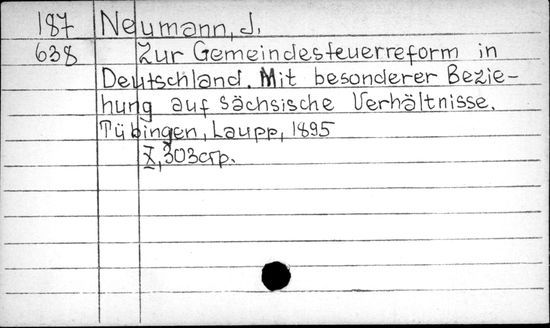 187 Neumann, J.
638 Zur Gemeindesteuerreform in
Deutschland. Mit besonderer Bezie-
hung auf sächsische Verhältnisse.
Tübingen, Laupp, 1895
X, 303 стр.